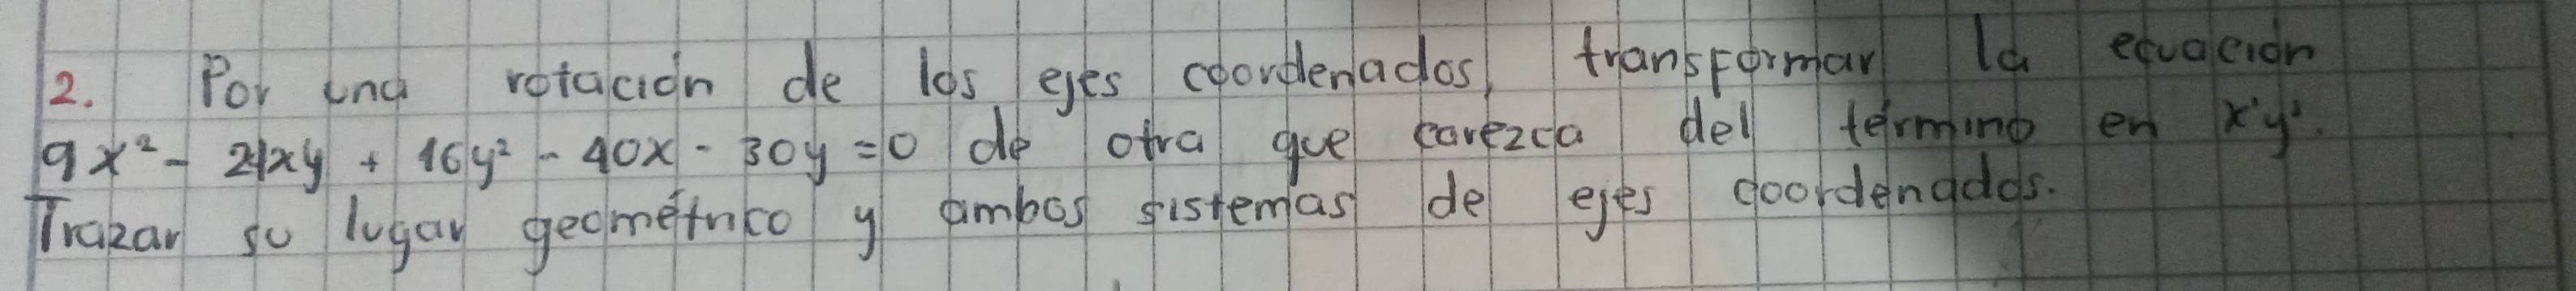 2. Por una rotación de los ejes coordenados, transformar la ecuación
9x² - 24xy + 16y² - 40x - 30y = 0 de otra que carezca del término en x'y'.
Trazar su lugar geométrico y ambos sistemas de ejes coordenados.